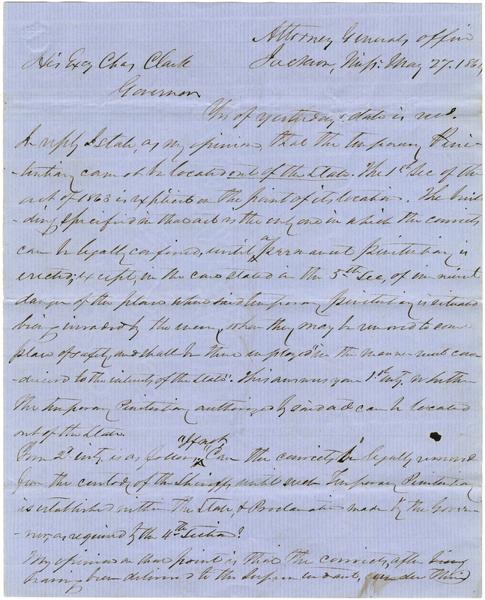 Attorney Generals office
Jackson, Miss: May 27. 1864
His Excy Chas Clark
Governor
Yrs of yesterday's date is recd.
In reply I state, as my opinion that the temporary Peni-
tentiary cannot be located out of the State. The 1st Sec of the
act of 1863 is explicit on the point of its location. The buil-
ding specified in that act is the only one in which the convicts
can be legally confined, until a permanent Penitentiary is
erected; except, in the case stated in the 5th Sec, of imminent
danger of the place where said temporary Penitentiary is situated
being invaded by the enemy, when they may be removed to some
place of safety and shall be there employed "in the manner most con-
ducive to the interests of the State". This answers your 1st inty. whether
the temporary Penitentiary authorized by said act can be located
out of the State.
Your 2d inty. is as follows, Can the convicts be legally removed
from the custody of the Sheriffs, until such Temporary Penitentiary
is established within the State, & Proclamation made by the Gover-
nor, as required by the 4th Section?
My opinion on that point is that the convicts, after
having been delivered to the Superintendent, under third